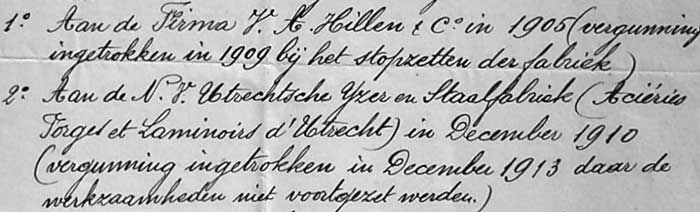 1º Aan de Firma V. A. Hillen & Cº in 1905 (vergunning
ingetrokken in 1909 bij het stopzetten der fabriek)
2º Aan de N. V. Utrechtsche Yzer en Staalfabriek (Aciéries
Forges et Laminoirs d'Utrecht) in December 1910
(vergunning ingetrokken in December 1913 daar de
werkzaamheden niet voortgezet werden.)